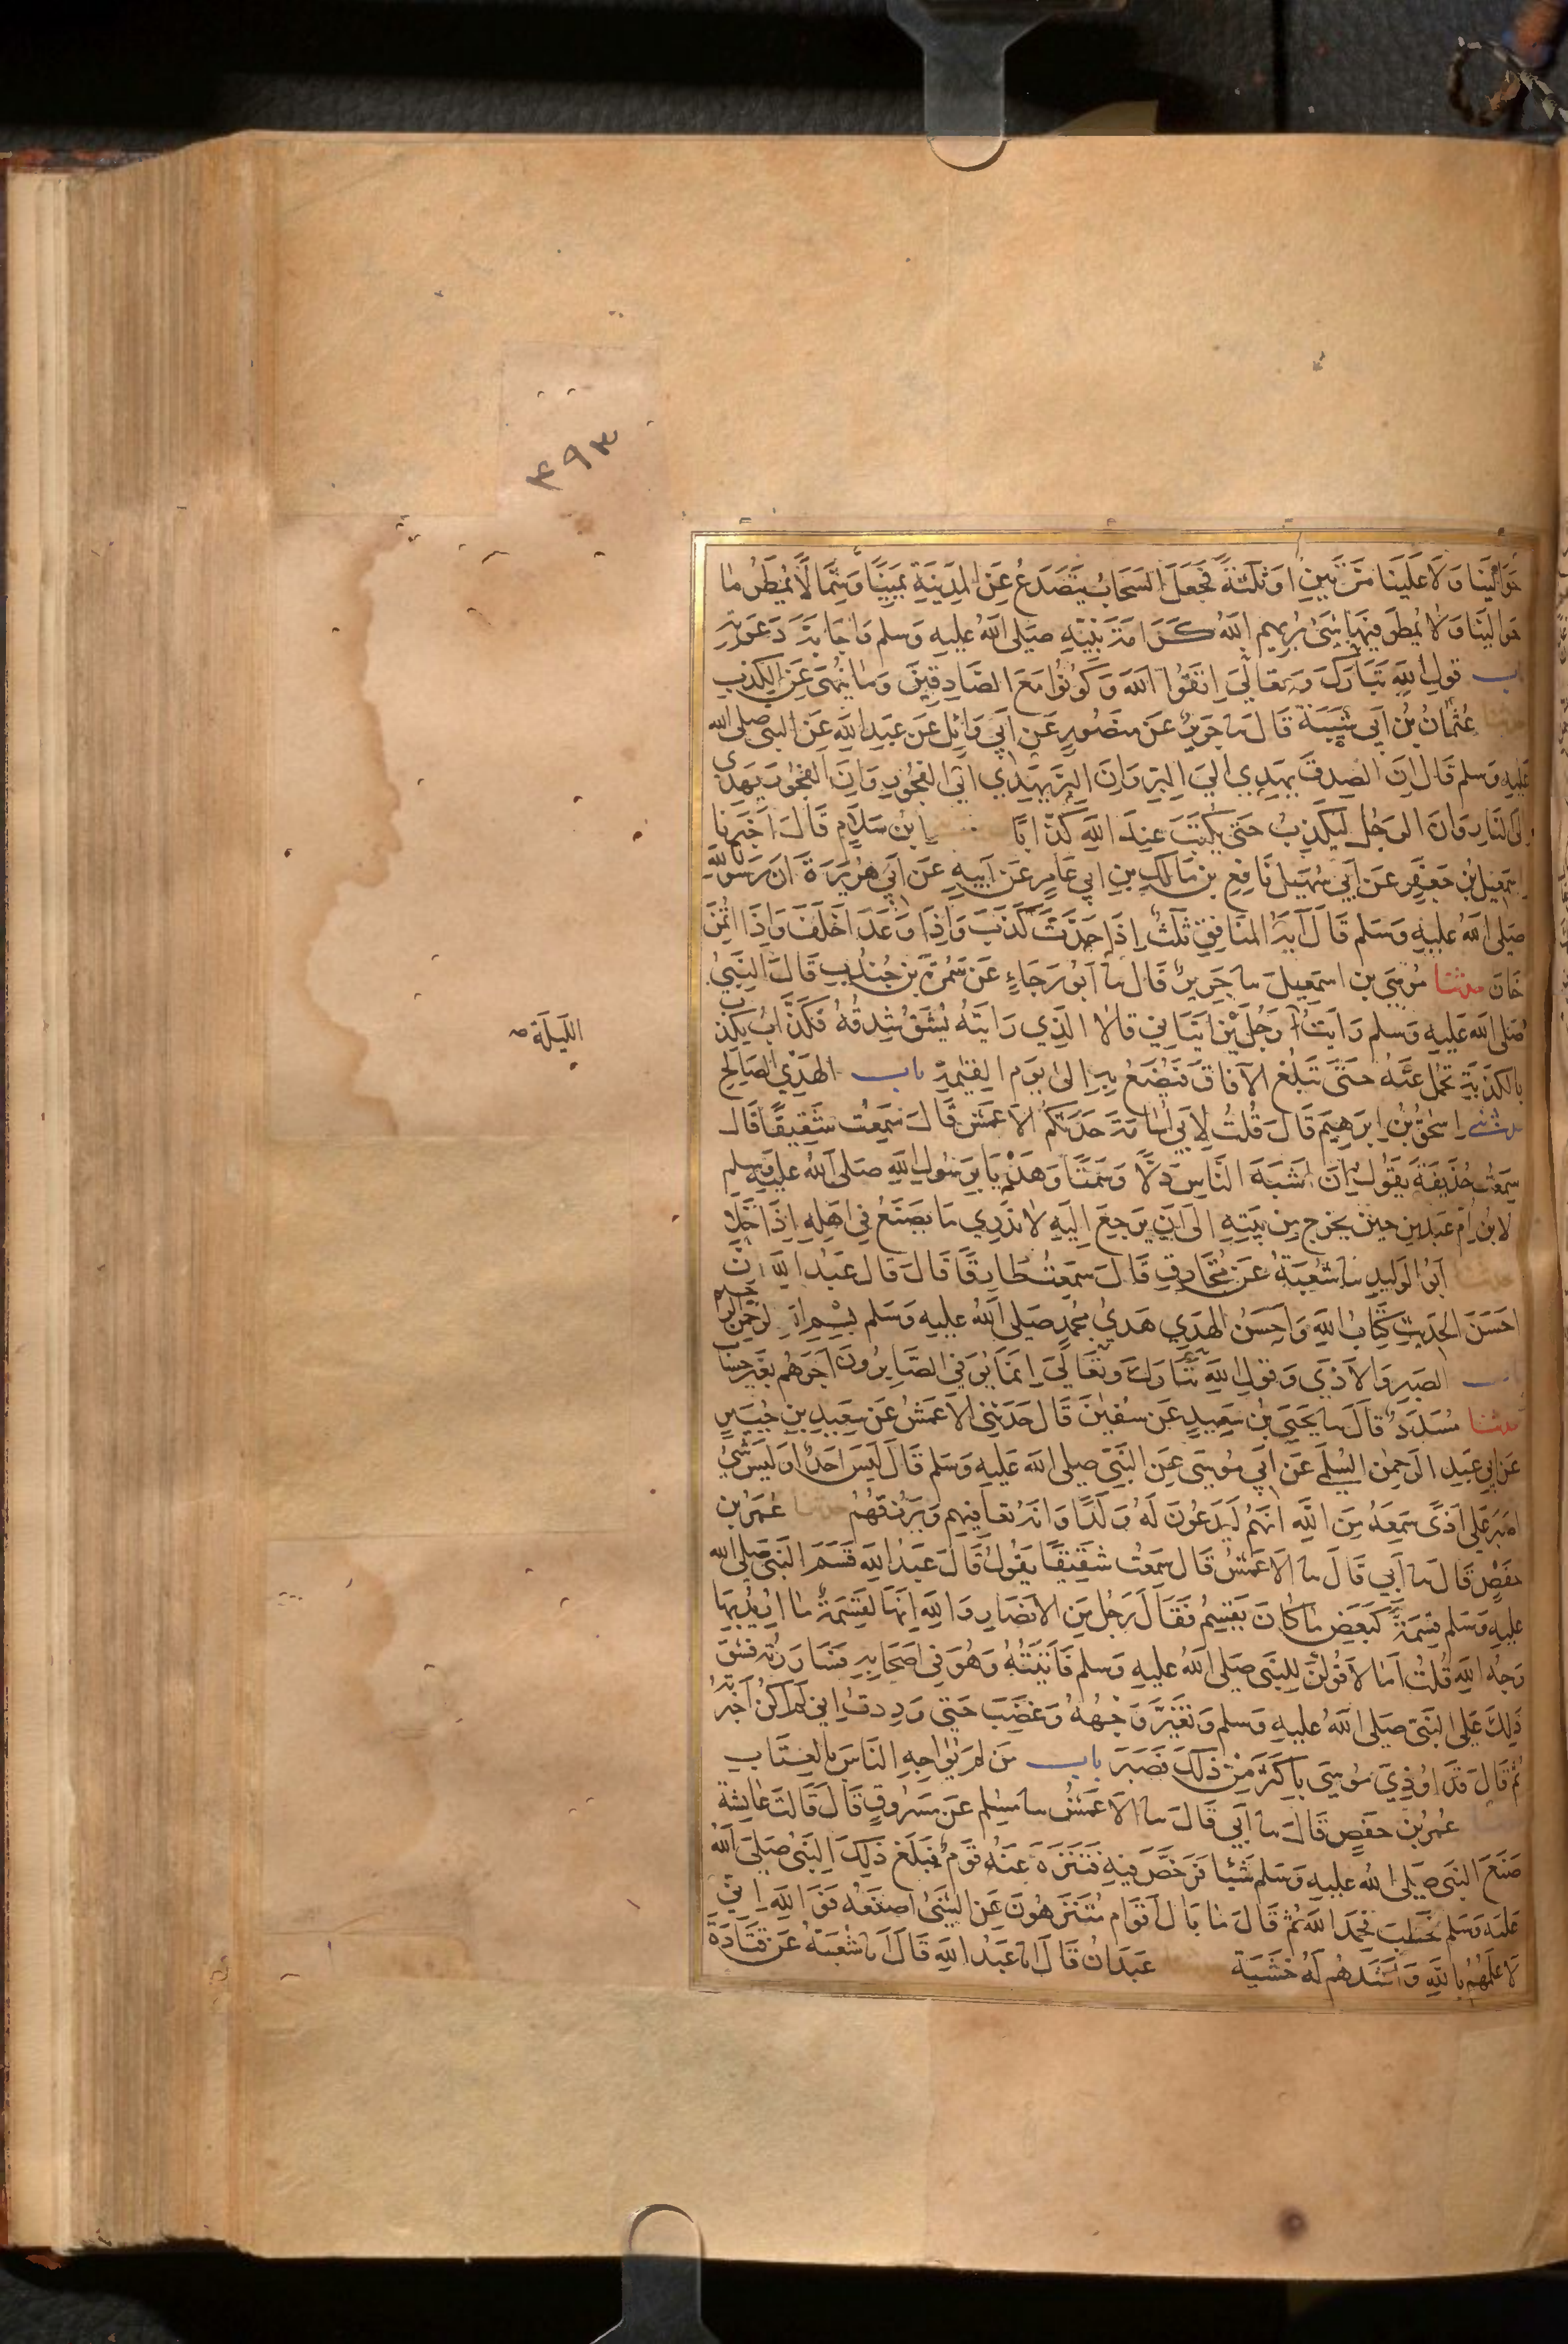 ۴۹۳
حَوَالَيْنَا وَلَا عَلَيْنَا مَرَّتَيْنِ اَوْ ثَلٰثَةً فَجَعَلَ السَّحَابُ يَتَصَدَّعُ عَنِ الْمَدِيْنَةِ يَمِيْنًا وَشِمَالًا يُمْطَرُ مَا
حَوَالَيْنَا وَلَا يُمْطَرُ فِيْهَا شَيْءٌ يُرِيْهِمُ اللّٰهُ كَرَامَةَ نَبِيِّهِ صَلَّى اللّٰهُ عَلَيْهِ وَسَلَّم وَاِجَابَةَ دَعْوَتِهِ
باب قَوْلِ اللّٰهِ تَبَارَكَ وَتَعَالٰى اِتَّقُوا اللّٰهَ وَكُوْنُوْا مَعَ الصَّادِقِيْنَ وَمَا يُنْهٰى عَنِ الْكَذِبِ
حدثنا عُثْمَانُ بْنُ اَبِي شَيْبَةَ قَالَ نا جَرِيْرٌ عَنْ مَنْصُوْرٍ عَنْ اَبِي وَائِلٍ عَنْ عَبْدِ اللّٰهِ عَنِ النَّبِيِّ صَلَّى اللّٰه
عَلَيْهِ وَسَلَّم قَالَ اِنَّ الصِّدْقَ يَهْدِي اِلَى الْبِرِّ وَاِنَّ الْبِرَّ يَهْدِي اِلَى الْفُجُوْرِ وَاِنَّ الْفُجُوْرَ يَهْدِي
اِلَى النَّارِ وَاِنَّ الرَّجُلَ لَيَكْذِبُ حَتّٰى يُكْتَبَ عِنْدَ اللّٰهِ كَذَّابًا اِبْنُ سَلَامٍ قَالَ اَخْبَرَنَا
اِسْمٰعِيلُ بْنُ جَعْفَرٍ عَنْ اَبِي سُهَيْلٍ نَافِعِ بْنِ مَالِكِ بْنِ اَبِي عَامِرٍ عَنْ اَبِيْهِ عَنْ اَبِي هُرَيْرَةَ اَنَّ رَسُوْلَ اللّٰهِ
صَلَّى اللّٰهُ عَلَيْهِ وَسَلَّم قَالَ آيَةُ الْمُنَافِقِ ثَلٰثٌ اِذَا حَدَّثَ كَذَبَ وَاِذَا وَعَدَ اَخْلَفَ وَاِذَا ائْتُمِنَ
خَانَ حدثنا مُوْسَى بن اسمعيل نا جَرِيْرٌ قَالَ نا اَبُو رَجَاءٍ عَنْ سَمُرَةَ بْنِ جُنْدُبٍ قَالَ النَّبِيُّ
صَلَّى اللّٰه عَلَيْهِ وَسَلَّم رَاَيْتُ رَجُلَيْنِ اَتَيَانِي قَالَا الَّذِي رَاَيْتَهُ يُشَقُّ شِدْقُهُ فَكَذَّابٌ يَكْذِبُ
اللَّيلَة صح
بِالْكَذْبَةِ تُحْمَلُ عَنْهُ حَتّٰى تَبْلُغَ الْآفَاقَ فَيُصْنَعُ بِهِ اِلٰى يَوْمِ الْقِيٰمَةِ باب الْهَدْيِ الصَّالِحِ
حدثني اِسْحٰقُ بْنُ اِبْرَهِيْمَ قَالَ قُلْتُ لِاَبِي اُسَامَةَ حَدَّثَكُمُ الْاَعْمَشُ قَالَ سَمِعْتُ شَقِيْقًا قَالَ
سَمِعْتُ حُذَيْفَةَ يَقُوْلُ اِنَّ اَشْبَهَ النَّاسِ دَلًّا وَسَمْتًا وَهَدْيًا بِرَسُوْلِ اللّٰهِ صَلَّى اللّٰهُ عَلَيْهِ وَسَلَّم
لَابْنُ اُمِّ عَبْدٍ مِنْ حِيْنَ يَخْرُجُ مِنْ بَيْتِهِ اِلٰى اَنْ يَرْجِعَ اِلَيْهِ لَا نَدْرِي مَا يَصْنَعُ فِي اَهْلِهِ اِذَا خَلَا
حدثنا اَبُو الْوَلِيْدِ نا شُعْبَةُ عَنْ مُخَارِقٍ قَالَ سَمِعْتُ طَارِقًا قَالَ قَالَ عَبْدُ اللّٰهِ اِنَّ
اَحْسَنَ الْحَدِيْثِ كِتَابُ اللّٰهِ وَاَحْسَنَ الْهَدْيِ هَدْيُ مُحَمَّدٍ صَلَّى اللّٰهُ عَلَيْهِ وَسَلَّم بِسْمِ اللّٰهِ الرَّحْمٰنِ الرَّحِيم
باب الصَّبْرِ وَالْاَذٰى وَقَوْلِ اللّٰهِ تَبَارَكَ وَتَعَالٰى اِنَّمَا يُوَفَّى الصَّابِرُوْنَ اَجْرَهُمْ بِغَيْرِ حِسَابٍ
حدثنا مُسَدَّدٌ قَالَ نا يَحْيَى بْنُ سَعِيْدٍ عَنْ سُفْيٰنَ قَالَ حَدَّثَنِي الْاَعْمَشُ عَنْ سَعِيْدِ بْنِ جُبَيْرٍ
عَنْ اَبِي عَبْدِ الرَّحْمٰنِ السُّلَمِي عَنْ اَبِي مُوْسَى عَنِ النَّبِيِّ صَلَّى اللّٰه عَلَيْهِ وَسَلَّم قَالَ لَيْسَ اَحَدٌ اَوْ لَيْسَ شَيْءٌ
اَصْبَرَ عَلٰى اَذًى سَمِعَهُ مِنَ اللّٰهِ اِنَّهُمْ لَيَدْعُوْنَ لَهُ وَلَدًا وَاِنَّهُ لَيُعَافِيْهِمْ وَيَرْزُقُهُمْ حدثنا عُمَرُ بْنُ
حَفْصٍ قَالَ نا اَبِي قَالَ نا الْاَعْمَشُ قَالَ سَمِعْتُ شَقِيْقًا يَقُوْلُ قَالَ عَبْدُ اللّٰهِ قَسَمَ النَّبِيُّ صَلَّى اللّٰه
عَلَيْهِ وَسَلَّم قِسْمَةً كَبَعْضِ مَا كَانَ يَقْسِمُ فَقَالَ رَجُلٌ مِنَ الْاَنْصَارِ وَاللّٰهِ اِنَّهَا لَقِسْمَةٌ مَا اُرِيْدَ بِهَا
وَجْهُ اللّٰهِ قُلْتُ اَمَا لَاَقُوْلَنَّ لِلنَّبِيِّ صَلَّى اللّٰهُ عَلَيْهِ وَسَلَّم فَاَتَيْتُهُ وَهُوَ فِي اَصْحَابِهِ فَسَارَرْتُهُ فَشَقَّ
ذٰلِكَ عَلَى النَّبِيِّ صَلَّى اللّٰهُ عَلَيْهِ وَسَلَّم وَتَغَيَّرَ وَجْهُهُ وَغَضِبَ حَتّٰى وَدِدْتُ اَنِّي لَمْ اَكُنْ اَخْبَرْتُهُ
ثُمَّ قَالَ قَدْ اُوْذِيَ مُوْسَى بِاَكْثَرَ مِنْ ذٰلِكَ فَصَبَرَ باب مَنْ لَمْ يُوَاجِهِ النَّاسَ بِالْعِتَابِ
عُمَرُ بْنُ حَفْصٍ قَالَ نا اَبِي قَالَ نا الْاَعْمَشُ نا مُسْلِم عَنْ مَسْرُوْقٍ قَالَ قَالَتْ عَائِشَة
صَنَعَ النَّبِيُّ صَلَّى اللّٰهُ عَلَيْهِ وَسَلَّم شَيْئًا فَرَخَّصَ فِيْهِ فَتَنَزَّهَ عَنْهُ قَوْمٌ فَبَلَغَ ذٰلِكَ النَّبِيَّ صَلَّى اللّٰهُ
عَلَيْهِ وَسَلَّم فَخَطَبَ فَحَمِدَ اللّٰهَ ثُمَّ قَالَ مَا بَالُ اَقْوَامٍ يَتَنَزَّهُوْنَ عَنِ الشَّيْءِ اَصْنَعُهُ فَوَاللّٰهِ اِنِّي
لَاَعْلَمُهُمْ بِاللّٰهِ وَاَشَدُّهُمْ لَهُ خَشْيَة عَبْدَانُ قَالَ انا عَبْدُ اللّٰهِ قَالَ نا شُعْبَةُ عَنْ قَتَادَةَ